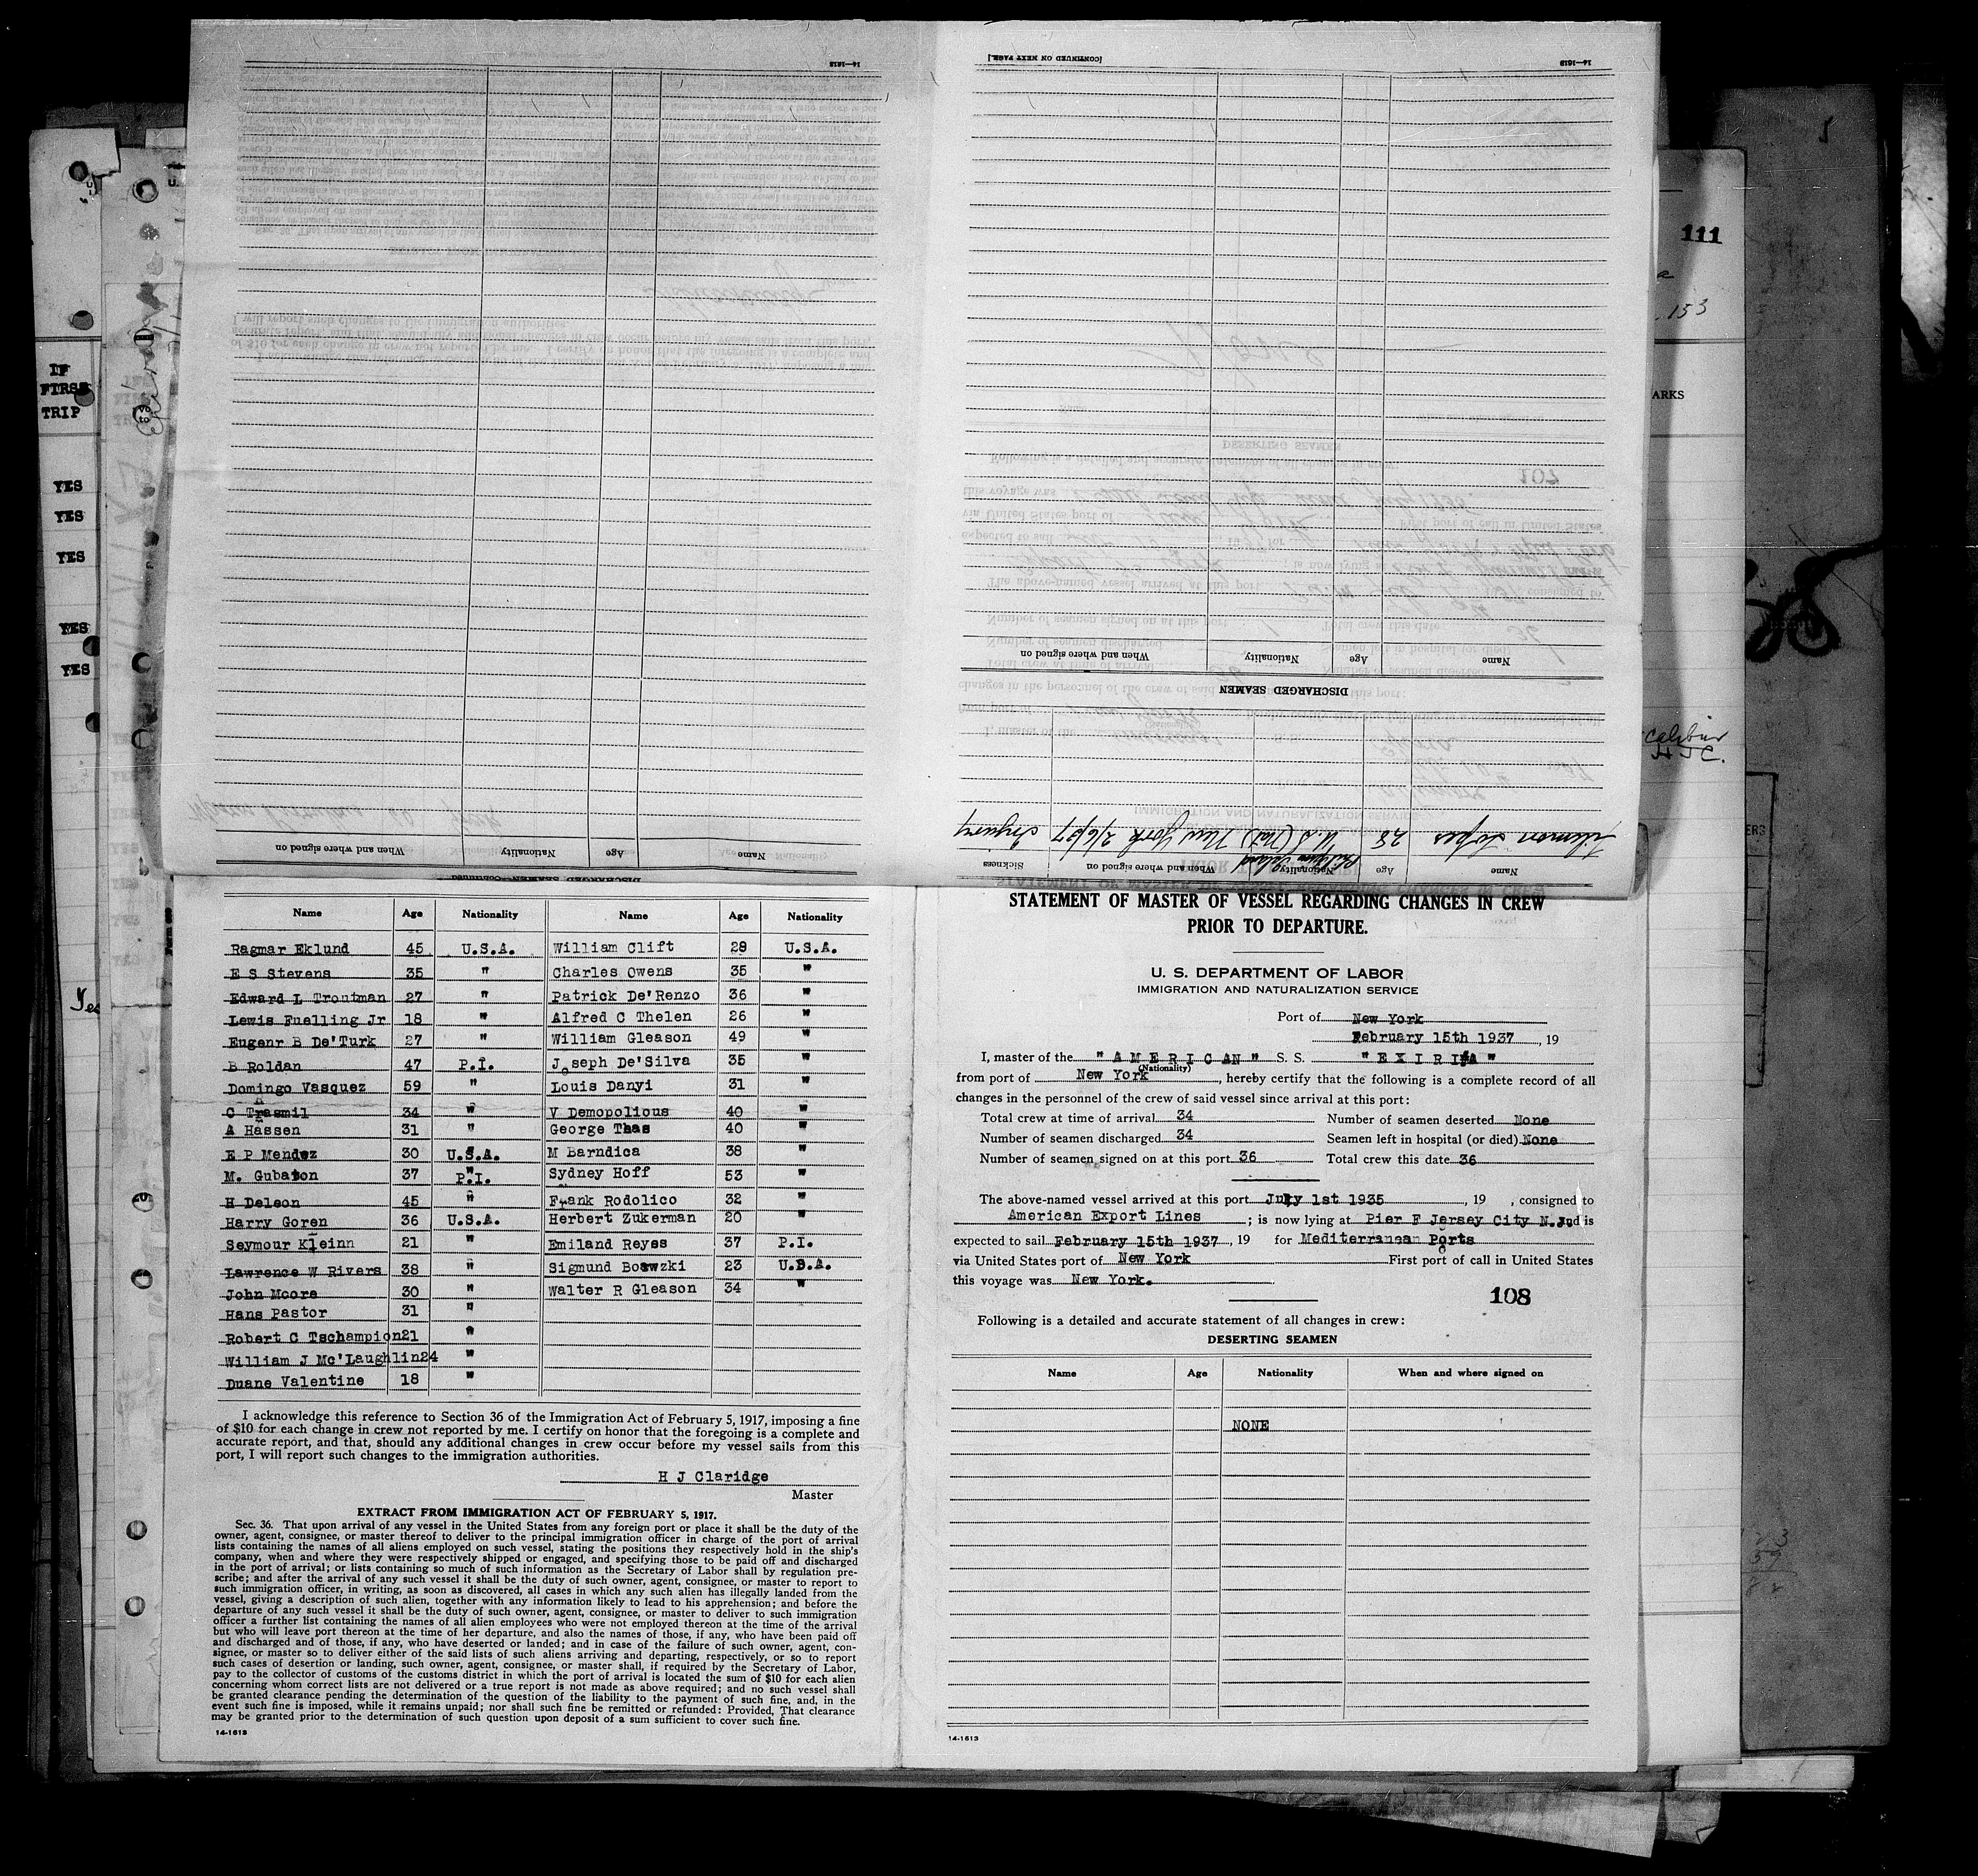 [CONTINUED ON NEXT PAGE.]
14—1613
14—1613
DISCHARGED SEAMEN
Name Age Nationality When and where signed on
Name Age Nationality When and where signed on Sickness
Lopes 28 U.S (Nat) New York 2/6/37 Injury
Name Age Nationality When and where signed on
111
153
ARKS
IF
FIRST
TRIP
YES
YES
YES
YES
YES
Yes
calibur
Name Age Nationality Name Age Nationality
Ragmar Eklund 45 U.S.A. William Clift 29 U.S.A.
E S Stevens 35 " Charles Owens 35 "
Edward L Troutman 27 " Patrick De'Renzo 36 "
Lewis Fuelling Jr 18 " Alfred C Thelen 26 "
Eugenr B De'Turk 27 " William Gleason 49 "
B Roldan 47 P.I. Joseph De'Silva 35 "
Domingo Vasquez 59 " Louis Danyi 31 "
C Trasmil 34 " V Demopolious 40 "
A Hassen 31 " George Thas 40 "
E P Mendez 30 U.S.A. M Barndica 38 "
M. Gubaton 37 P.I. Sydney Hoff 53 "
H Deleon 45 " Frank Rodolico 32 "
Harry Goren 36 U.S.A. Herbert Zukerman 20 "
Seymour Kleinn 21 " Emiland Reyes 37 P.I.
Lawrence W Rivers 38 " Sigmund Boswzki 23 U.S.A.
John Moore 30 " Walter R Gleason 34 "
Hans Pastor 31 "
Robert C Tschampion 21 "
William J Mc'Laughlin 24 "
Duane Valentine 18 "
I acknowledge this reference to Section 36 of the Immigration Act of February 5, 1917, imposing a fine
of $10 for each change in crew not reported by me. I certify on honor that the foregoing is a complete and
accurate report, and that, should any additional changes in crew occur before my vessel sails from this
port, I will report such changes to the immigration authorities.
H J Claridge
Master
EXTRACT FROM IMMIGRATION ACT OF FEBRUARY 5, 1917.
Sec. 36. That upon arrival of any vessel in the United States from any foreign port or place it shall be the duty of the
owner, agent, consignee, or master thereof to deliver to the principal immigration officer in charge of the port of arrival
lists containing the names of all aliens employed on such vessel, stating the positions they respectively hold in the ship's
company, when and where they were respectively shipped or engaged, and specifying those to be paid off and discharged
in the port of arrival; or lists containing so much of such information as the Secretary of Labor shall by regulation pre-
scribe; and after the arrival of any such vessel it shall be the duty of such owner, agent, consignee, or master to report to
such immigration officer, in writing, as soon as discovered, all cases in which any such alien has illegally landed from the
vessel, giving a description of such alien, together with any information likely to lead to his apprehension; and before the
departure of any such vessel it shall be the duty of such owner, agent, consignee, or master to deliver to such immigration
officer a further list containing the names of all alien employees who were not employed thereon at the time of the arrival
but who will leave port thereon at the time of her departure, and also the names of those, if any, who have been paid off
and discharged and of those, if any, who have deserted or landed; and in case of the failure of such owner, agent, con-
signee, or master so to deliver either of the said lists of such aliens arriving and departing, respectively, or so to report
such cases of desertion or landing, such owner, agent, consignee, or master shall, if required by the Secretary of Labor,
pay to the collector of customs of the customs district in which the port of arrival is located the sum of $10 for each alien
concerning whom correct lists are not delivered or a true report is not made as above required; and no such vessel shall
be granted clearance pending the determination of the question of the liability to the payment of such fine, and, in the
event such fine is imposed, while it remains unpaid; nor shall such fine be remitted or refunded: Provided, That clearance
may be granted prior to the determination of such question upon deposit of a sum sufficient to cover such fine.
14-1613
STATEMENT OF MASTER OF VESSEL REGARDING CHANGES IN CREW
PRIOR TO DEPARTURE.
U. S. DEPARTMENT OF LABOR
IMMIGRATION AND NATURALIZATION SERVICE
Port of New York
February 15th 1937, 19
I, master of the "AMERICAN" S. S. "EXIRIA"
(Nationality)
from port of New York, hereby certify that the following is a complete record of all
changes in the personnel of the crew of said vessel since arrival at this port:
Total crew at time of arrival 34 Number of seamen deserted None
Number of seamen discharged 34 Seamen left in hospital (or died) None
Number of seamen signed on at this port 36 Total crew this date 36
The above-named vessel arrived at this port July 1st 1935, 19 , consigned to
American Export Lines; is now lying at Pier F Jersey City N.J. and is
expected to sail February 15th 1937, 19 for Mediterranean Ports
via United States port of New York First port of call in United States
this voyage was New York.
108
Following is a detailed and accurate statement of all changes in crew:
DESERTING SEAMEN
Name Age Nationality When and where signed on
NONE
14-1613